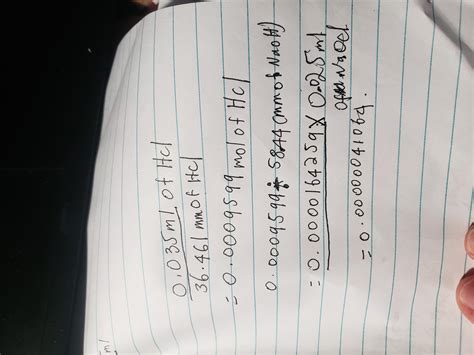 ml
0.035ml of HCl
36.461 mm of HCl
= 0.0009599 mol of HCl
0.0009599 ÷ 58.44 (mm of NaOH)
= 0.0000164259 X 0.025ml
of NaOCl
= 0.00000041064.